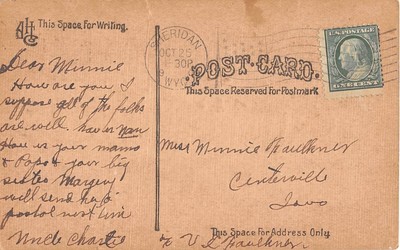 AHC
This Space For Writing.
SHERIDAN
OCT 25
30P
WYO.
U.S. POSTAGE
ONE CENT
POST CARD.
This Space Reserved for Postmark
Dear Minnie
How are you I
suppose all of the folks
are well
How is your mama
& Papa & your big
sister Margery
will send her a
postal next time
Uncle Charlie
Miss Minnie Faulkner
Centerville
Iowa
This Space For Address Only.
c/o V L Faulkner